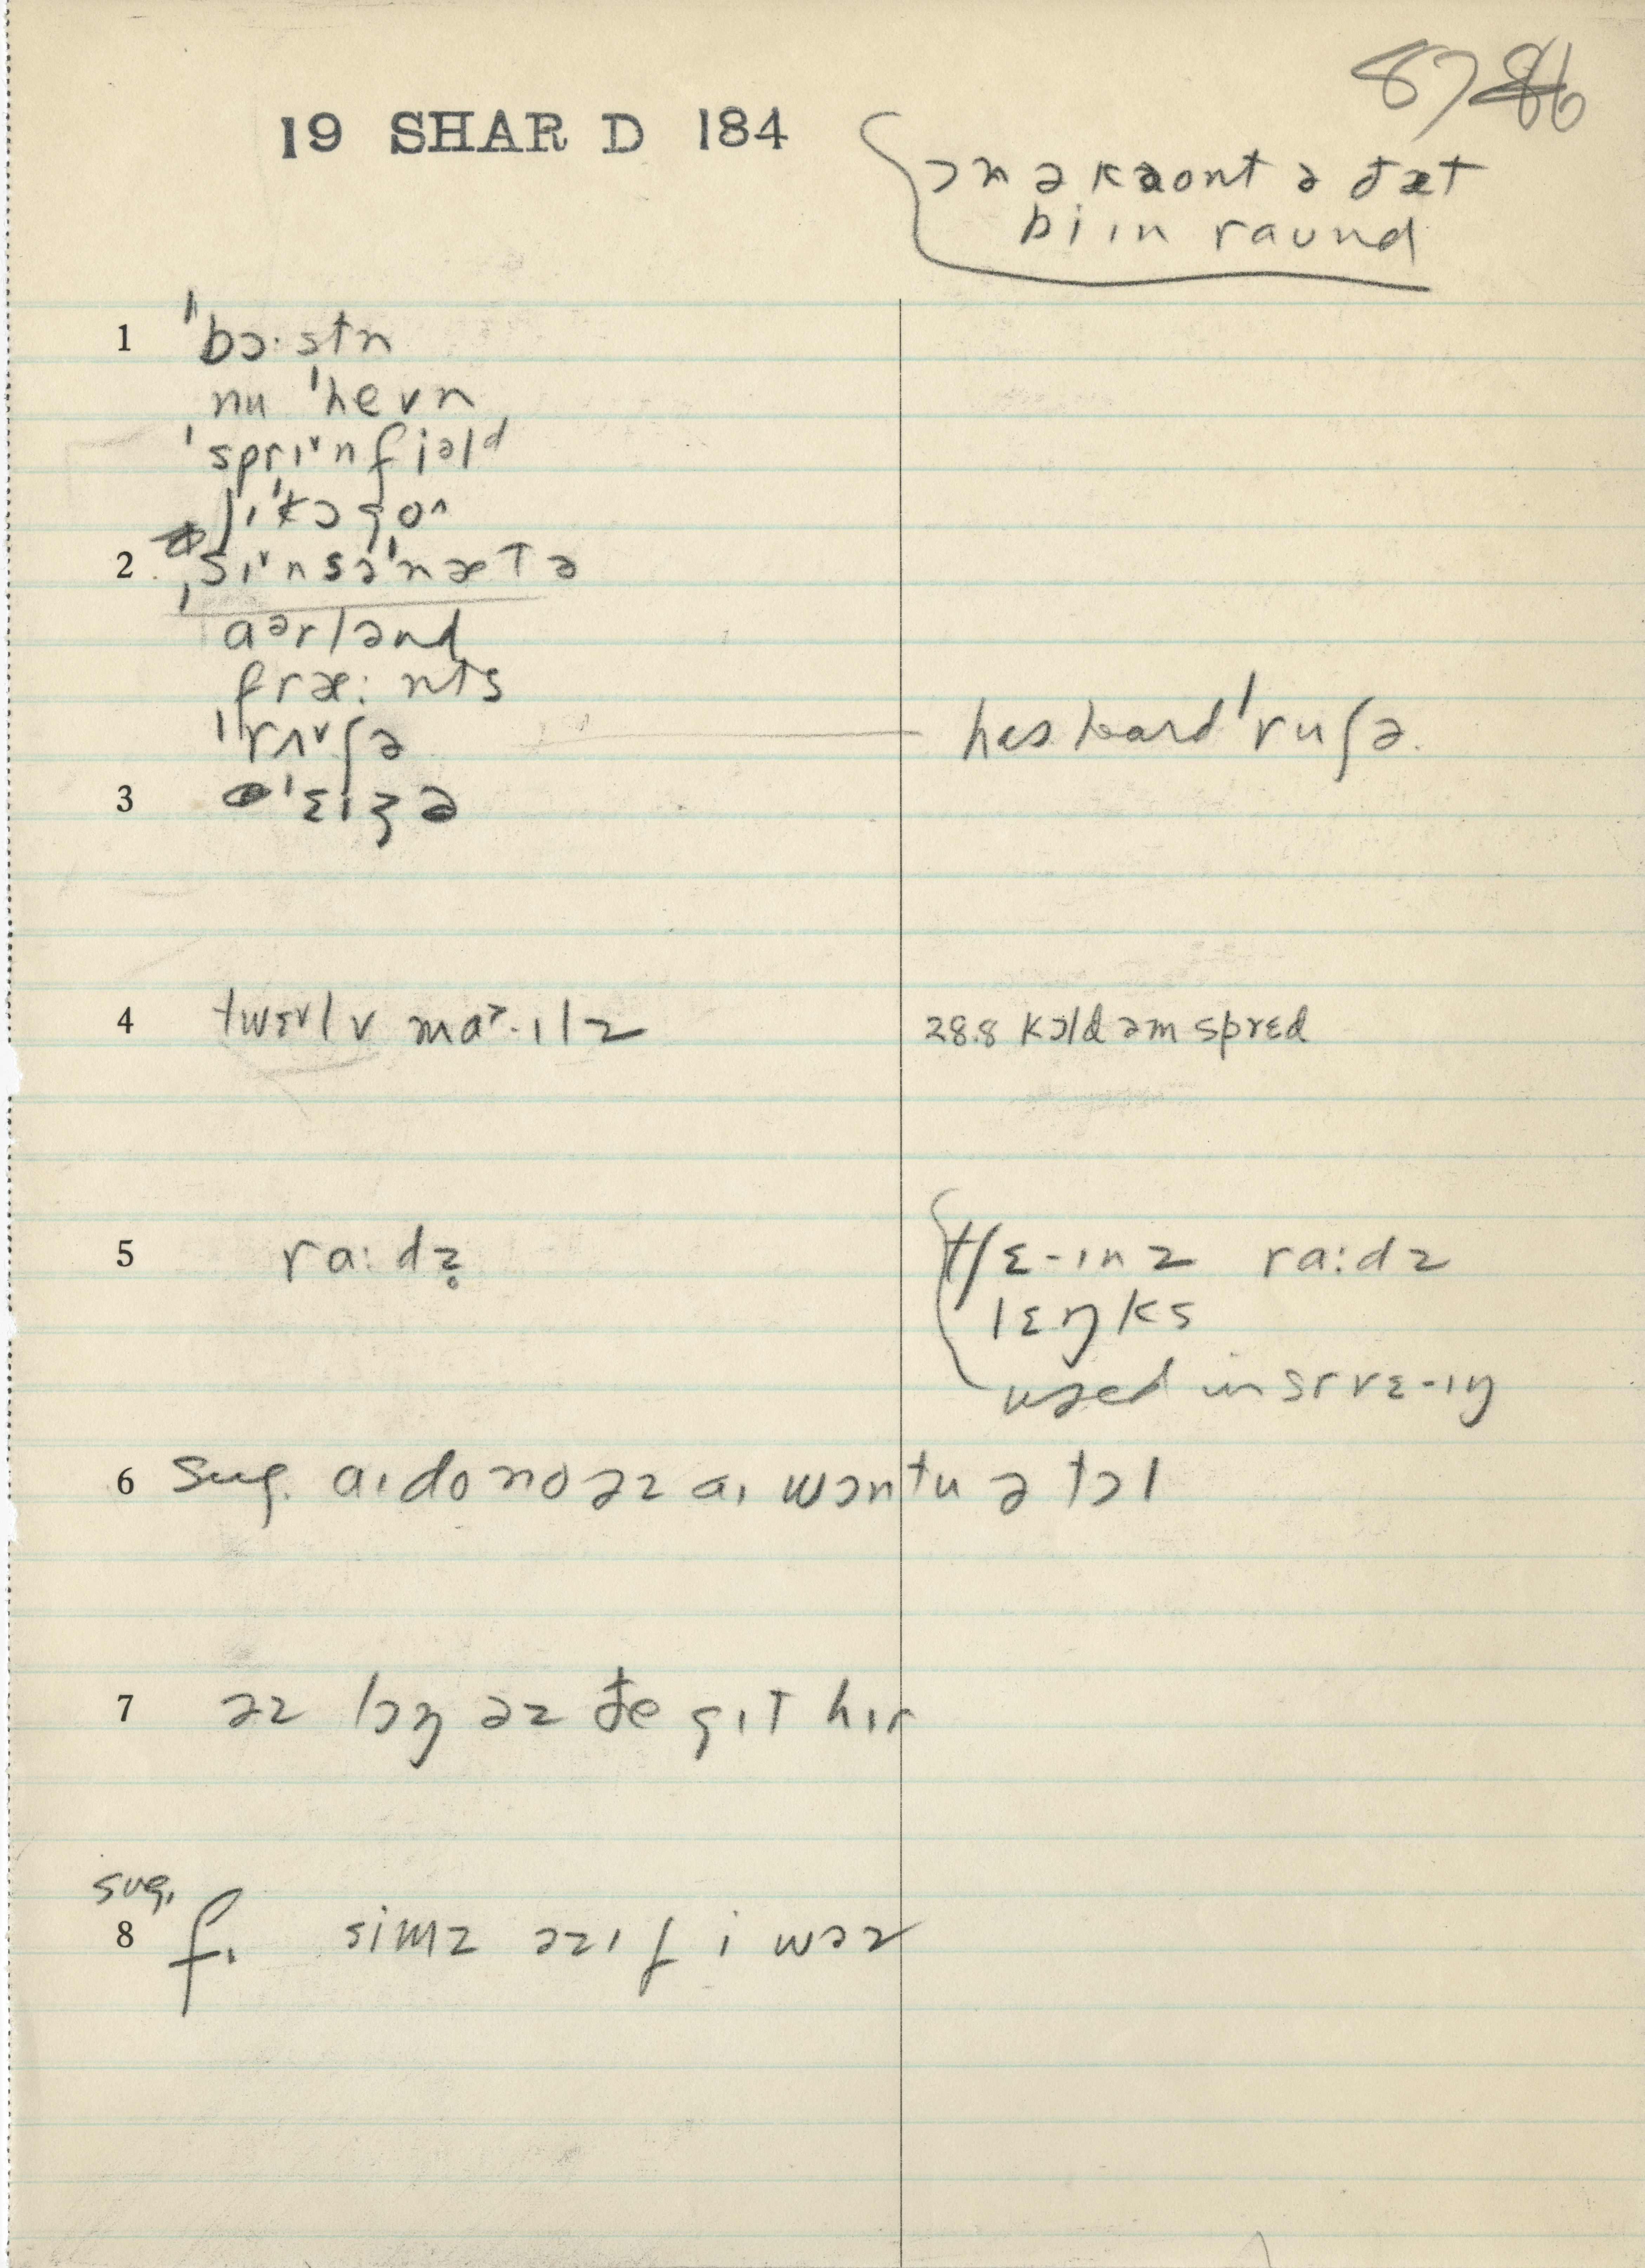 87 86
19 SHAR D 184
ɔn əkaont ə ðæt
bi ɪn raʊnd
1 ˈbɔ·stn
nu ˈhevn
ˈsprɪ˅nfiəld
ʃɪˈkɔgo^
2 ˌsɪ˅nsəˈnætə
aᵊrlənd
fræ: nts
ˈrʌ˅ʃə
has heard ˈruʃə.
3 ˈɛɪʒə
4 twɛ˅lv ma·ɪlz
28.8 kɔld əm sprɛd
5 ra: dz̥
tʃɛ-ɪnz ra:dz
lɛŋks
used in srvɛ-ɪŋ
6 sug. aɪ do no əz aɪ wɔn tu ə tɔl
7 əz lɔŋ əz ðe gɪt hɪr
sug.
8 f. simz əz ɪf i wəz